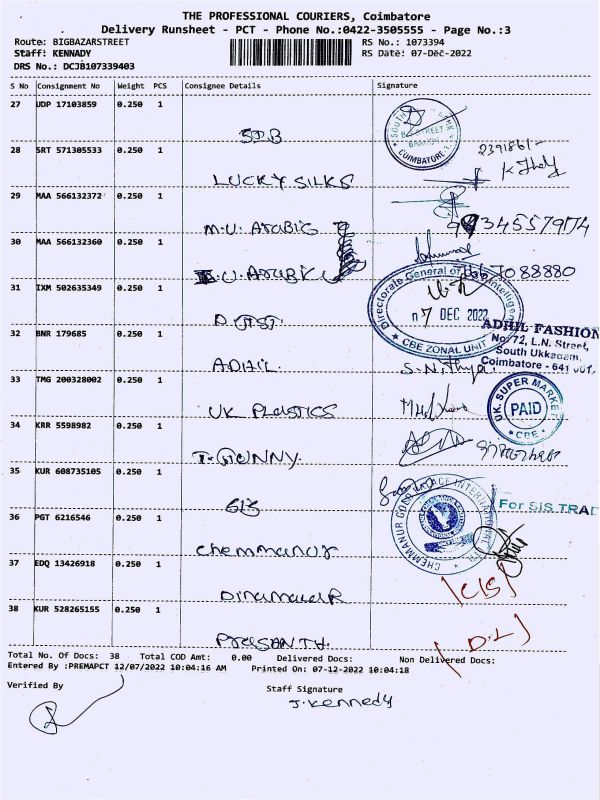 THE PROFESSIONAL COURIERS, Coimbatore
Delivery Runsheet - PCT - Phone No.:0422-3505555 - Page No.:3
Route: BIGBAZARSTREET RS No.: 1073394
Staff: KENNADY RS Date: 07-Dec-2022
DRS No.: DCJB107339403
S No Consignment No Weight PCS Consignee Details Signature
27 UDP 17103859 0.250 1
SIB
BRANCH
COIMBATORE
28 SRT 571305533 0.250 1 2391861-
LUCKY SILKS
29 MAA 566132372 0.250 1
M.U. Arabic
30 MAA 566132360 0.250 1
U. Arabic 88880
31 IXM 502635349 0.250 1
Directorate General of
07 DEC 2022
CBE ZONAL UNIT
32 BNR 179685 0.250 1
ADHIL FASHION
No.72, L.N. Street,
South Ukkadam,
Coimbatore - 641 001.
ADHIL S.N.
33 TMG 200328002 0.250 1
UK Plastics
UK. SUPER MARKET
PAID
CBE
34 KRR 5598982 0.250 1
35 KUR 608735105 0.250 1
SIS
For SIS TRAD
36 PGT 6216546 0.250 1
Chemmanur
CHEMMANUR GOLD PALACE INTERNATIONAL
37 EDQ 13426918 0.250 1
Dinamalar
38 KUR 528265155 0.250 1
Prasanth
D.L
Total No. Of Docs: 38 Total COD Amt: 0.00 Delivered Docs: Non Delivered Docs:
Entered By :PREMAPCT 12/07/2022 10:04:16 AM Printed On: 07-12-2022 10:04:18
Verified By Staff Signature
J. Kennedy